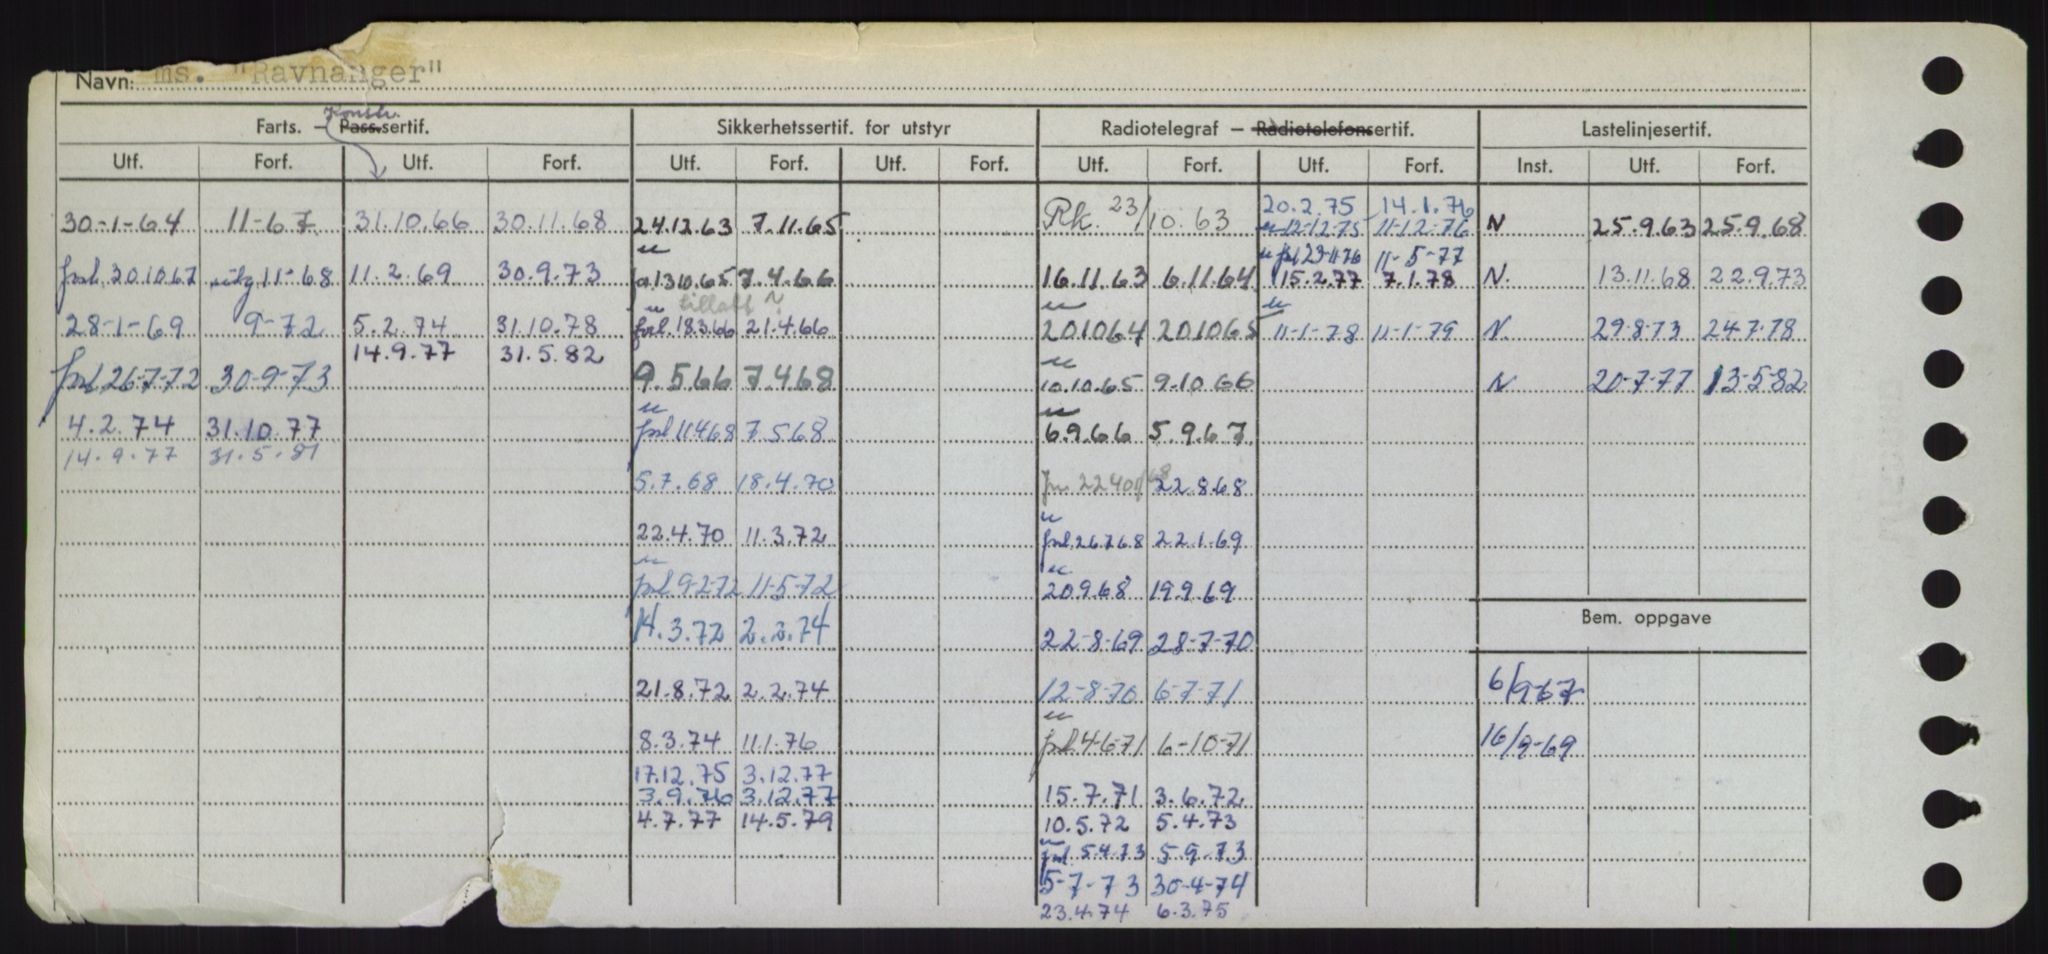 Navn: ms. "Ravnanger"
Konstr.
Farts. – Pass.sertif. Sikkerhetssertif. for utstyr Radiotelegraf – Radiotelefonsertif. Lastelinjesertif.
Utf. Forf. Utf. Forf. Utf. Forf. Utf. Forf. Utf. Forf. Utf. Forf. Inst. Utf. Forf.
20.2.75 14.1.76
30-1-64 11-67 31.10.66 30.11.68 24.12.63 7.11.65 Rk. 23/10.63 12-12-75 11-12-76 N 25.9.63 25.9.68
" " 23-11-76 11-5-77
forl. 20.10.67 11-68 11.2.69 30.9.73 13.10.65 7.4.66 16.11.63 6.11.64 15.2.77 7.1.78 N. 13.11.68 22.9.73
" tillatt ~ " "
28-1-69 9-72 5.2.74 31.10.78 forl. 18.3.66 21.4.66 20.10.64 20.10.65 11-1-78 11-1-79 N. 29-8-73 24-7-78
14.9.77 31.5.82 "
forl 26-7-72 30-9-73 9.5.66 7.4.68 10.10.65 9.10.66 N 20-7-77 13-5-82
" "
4.2.74 31.10.77 forl 11468 7.5.68 6.9.66 5.9.67
14.9.77 31.5.81
5.7.68 18.4.70 22.8.68
"
22.4.70 11.3.72 forl. 26.7.68 22.1.69
" "
forl 9-2-72 11-5-72 20.9.68 19.9.69
Bem. oppgave
14.3.72 2.2.74 22-8-69 28-7-70
21.8.72 2.2.74 12-8-70 6-7-71 6/9-67
"
8.3.74 11.1.76 forl 4-6-71 6-10-71 16/9-69
17.12.75 3.12.77
3.9.76 3.12.77 15.7.71 3.6.72
4.7.77 14.5.79 10.5.72 5.4.73
"
forl 5.4.73 5-9-73
5-7-73 30-4-74
23.4.74 6.3.75